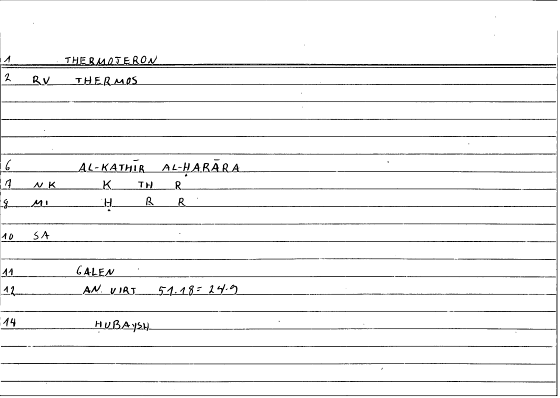 1 THERMOTERON
2 RV THERMOS
6 AL-KATHĪR AL-ḤARĀRA
7 NK K TH R
8 MI Ḥ R R
10 SA
11 GALEN
12 AN. VIRT 51.18 = 24.9
14 ḤUBAYSH